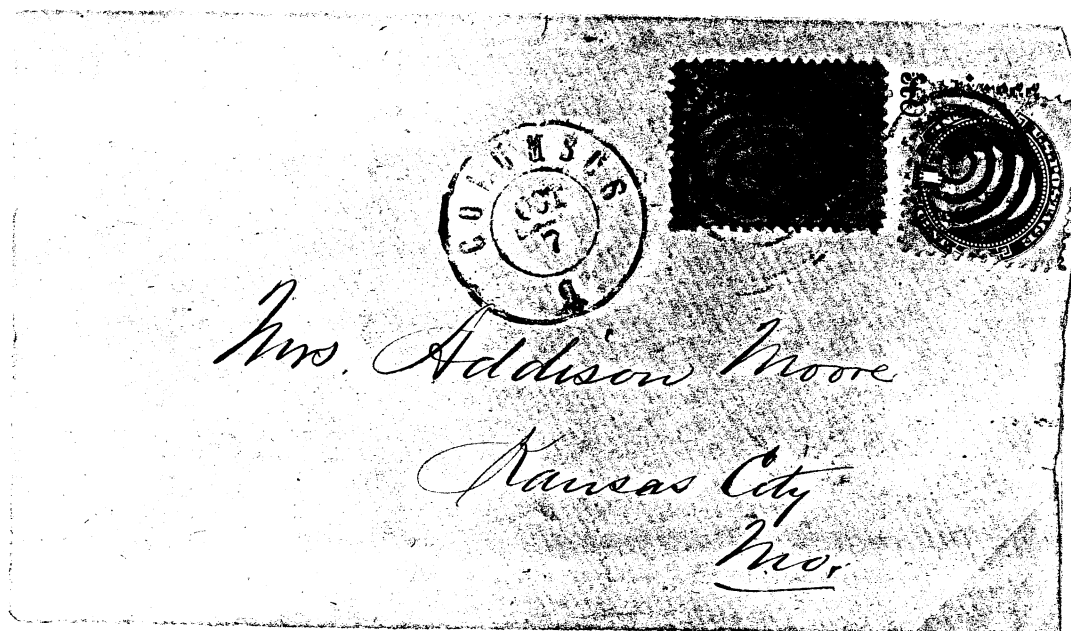 COLUMBUS
OCT
7
O
POSTAGE
Mrs. Addison Moore
Kansas City
Mo.